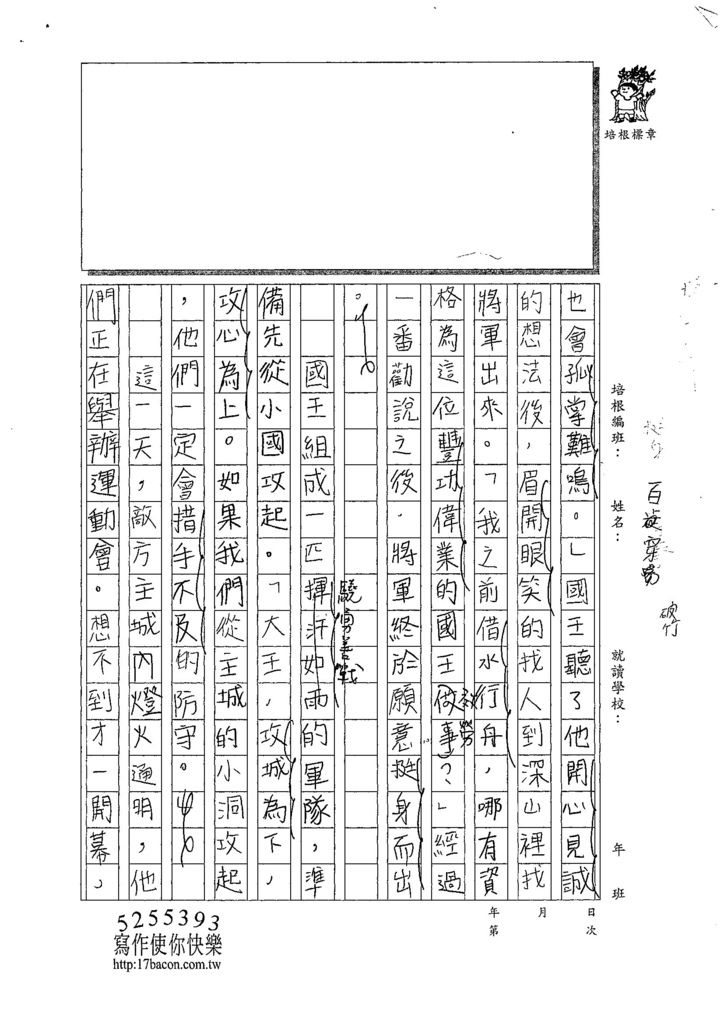 培根標章
培根編班：
姓名：
就讀學校：
年 班
年 月 日
第 次
百 穿
破竹
也會孤掌難鳴。」國王聽了他開心見誠
的想法後，眉開眼笑的找人到深山裡找
將軍出來。「我之前借水行舟，哪有資
格為這位豐功偉業的國王做事？」經過
效勞
一番勸說之後，將軍終於願意挺身而出
。
國王組成一匹揮汗如雨的軍隊，準
驍勇善戰
備先從小國攻起。「大王，攻城為下，
攻心為上。如果我們從主城的小洞攻起
，他們一定會措手不及的防守。
這一天，敵方主城內燈火通明，他
們正在舉辦運動會。想不到才一開幕，
5255393
寫作使你快樂
http:17bacon.com.tw